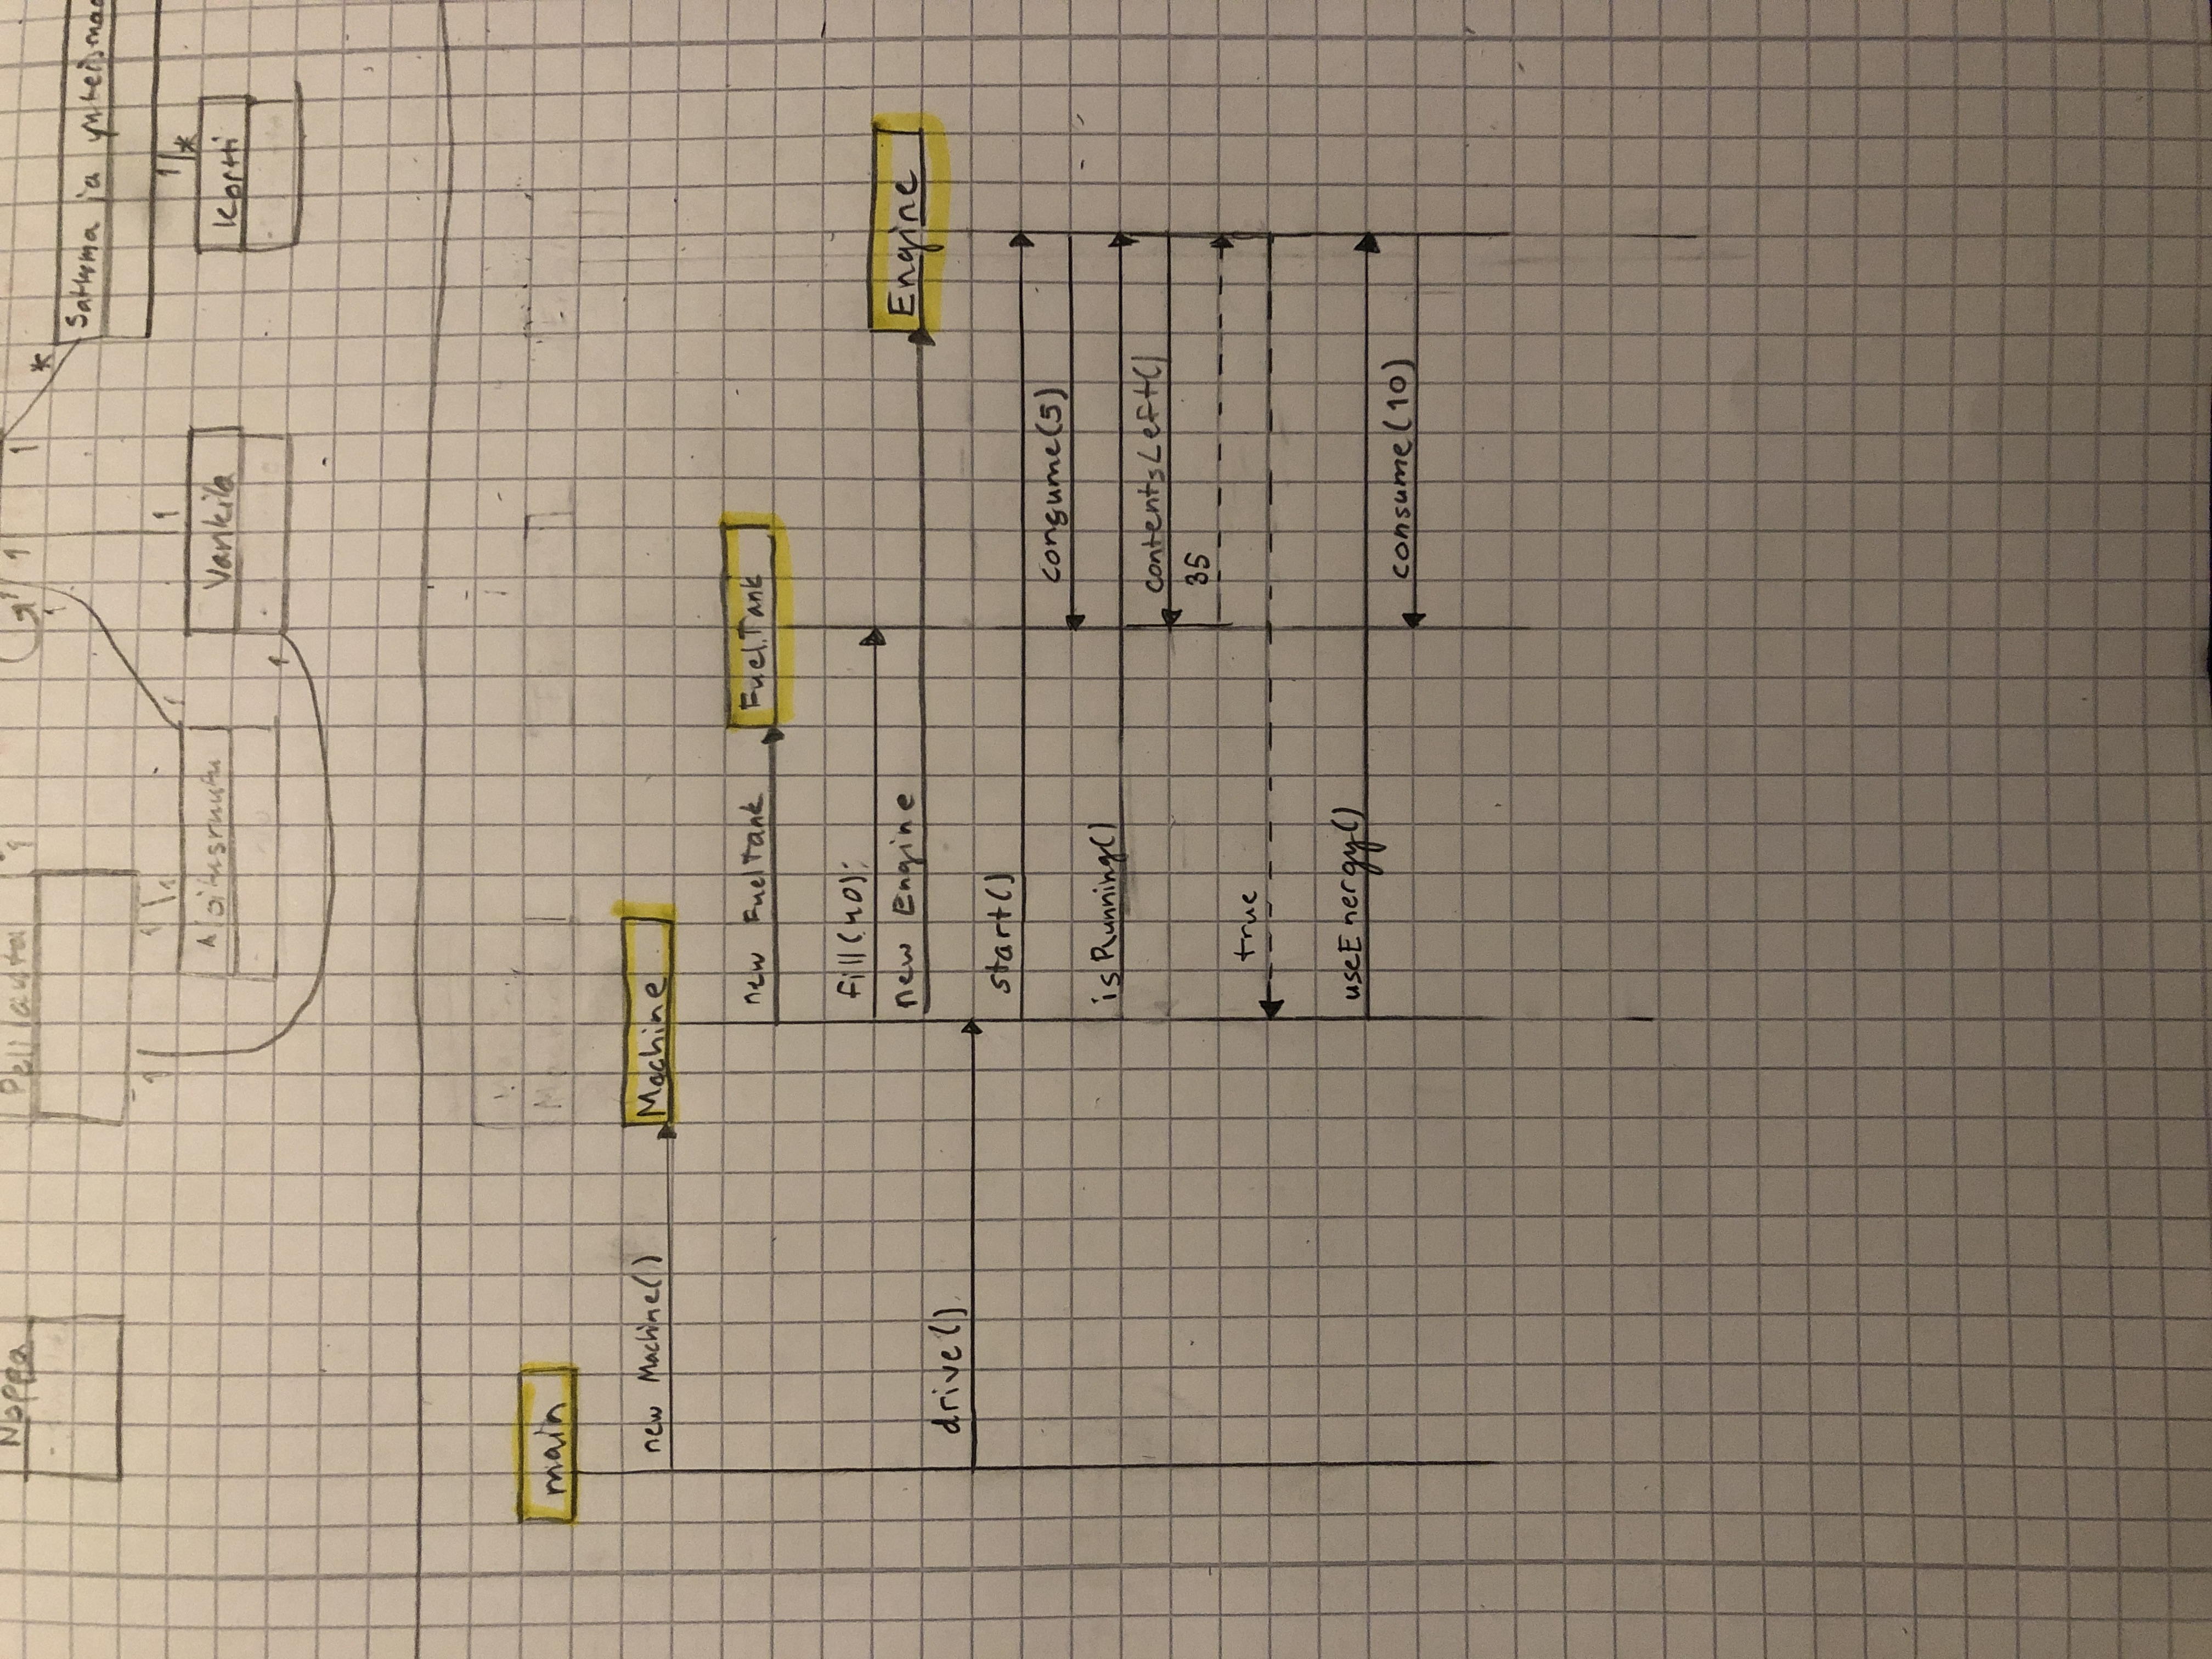 Noppa
Pelilauta
1
1
1
1
1
*
Sattuma ja yhteismaa
1
1
1
1
1
1
*
Aloitusruutu
Vankila
Kortti
1
main
new Machine()
Machine
new FuelTank
FuelTank
fill(40);
new Engine
Engine
drive()
start()
consume(5)
isRunning()
contentsLeft()
35
true
useEnergy()
consume(10)